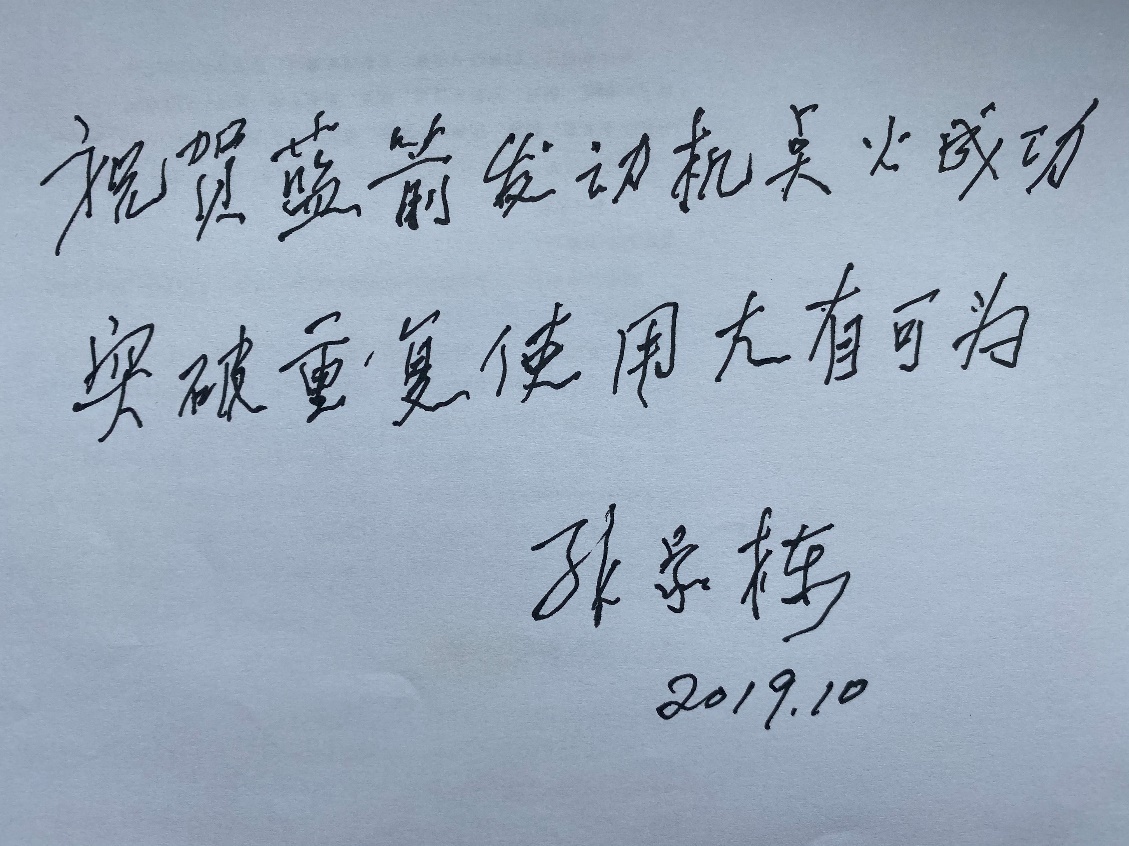 祝贺蓝箭发动机点火成功
突破重复使用大有可为
张荣栋
2019.10